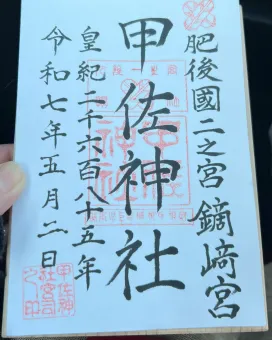 肥後國二之宮 鏑崎宮
甲佐神社
皇紀二千六百八十五年
令和七年五月二日
甲佐神
社宮司
之印